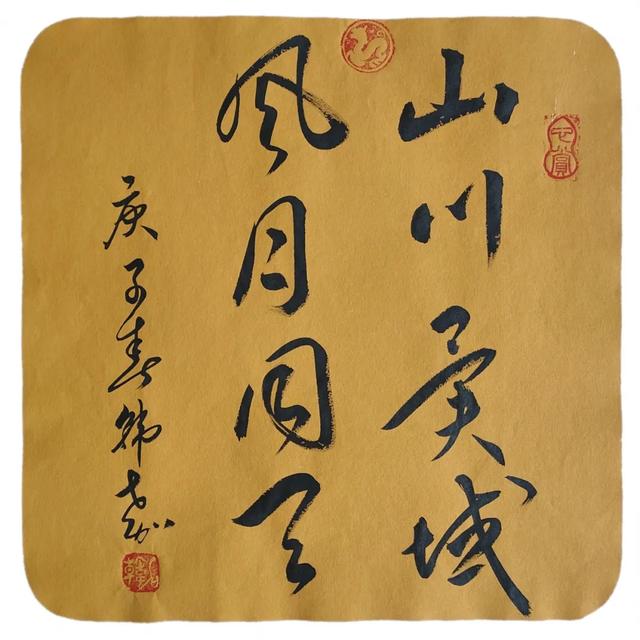 山川異域
风月同天
庚子春韩